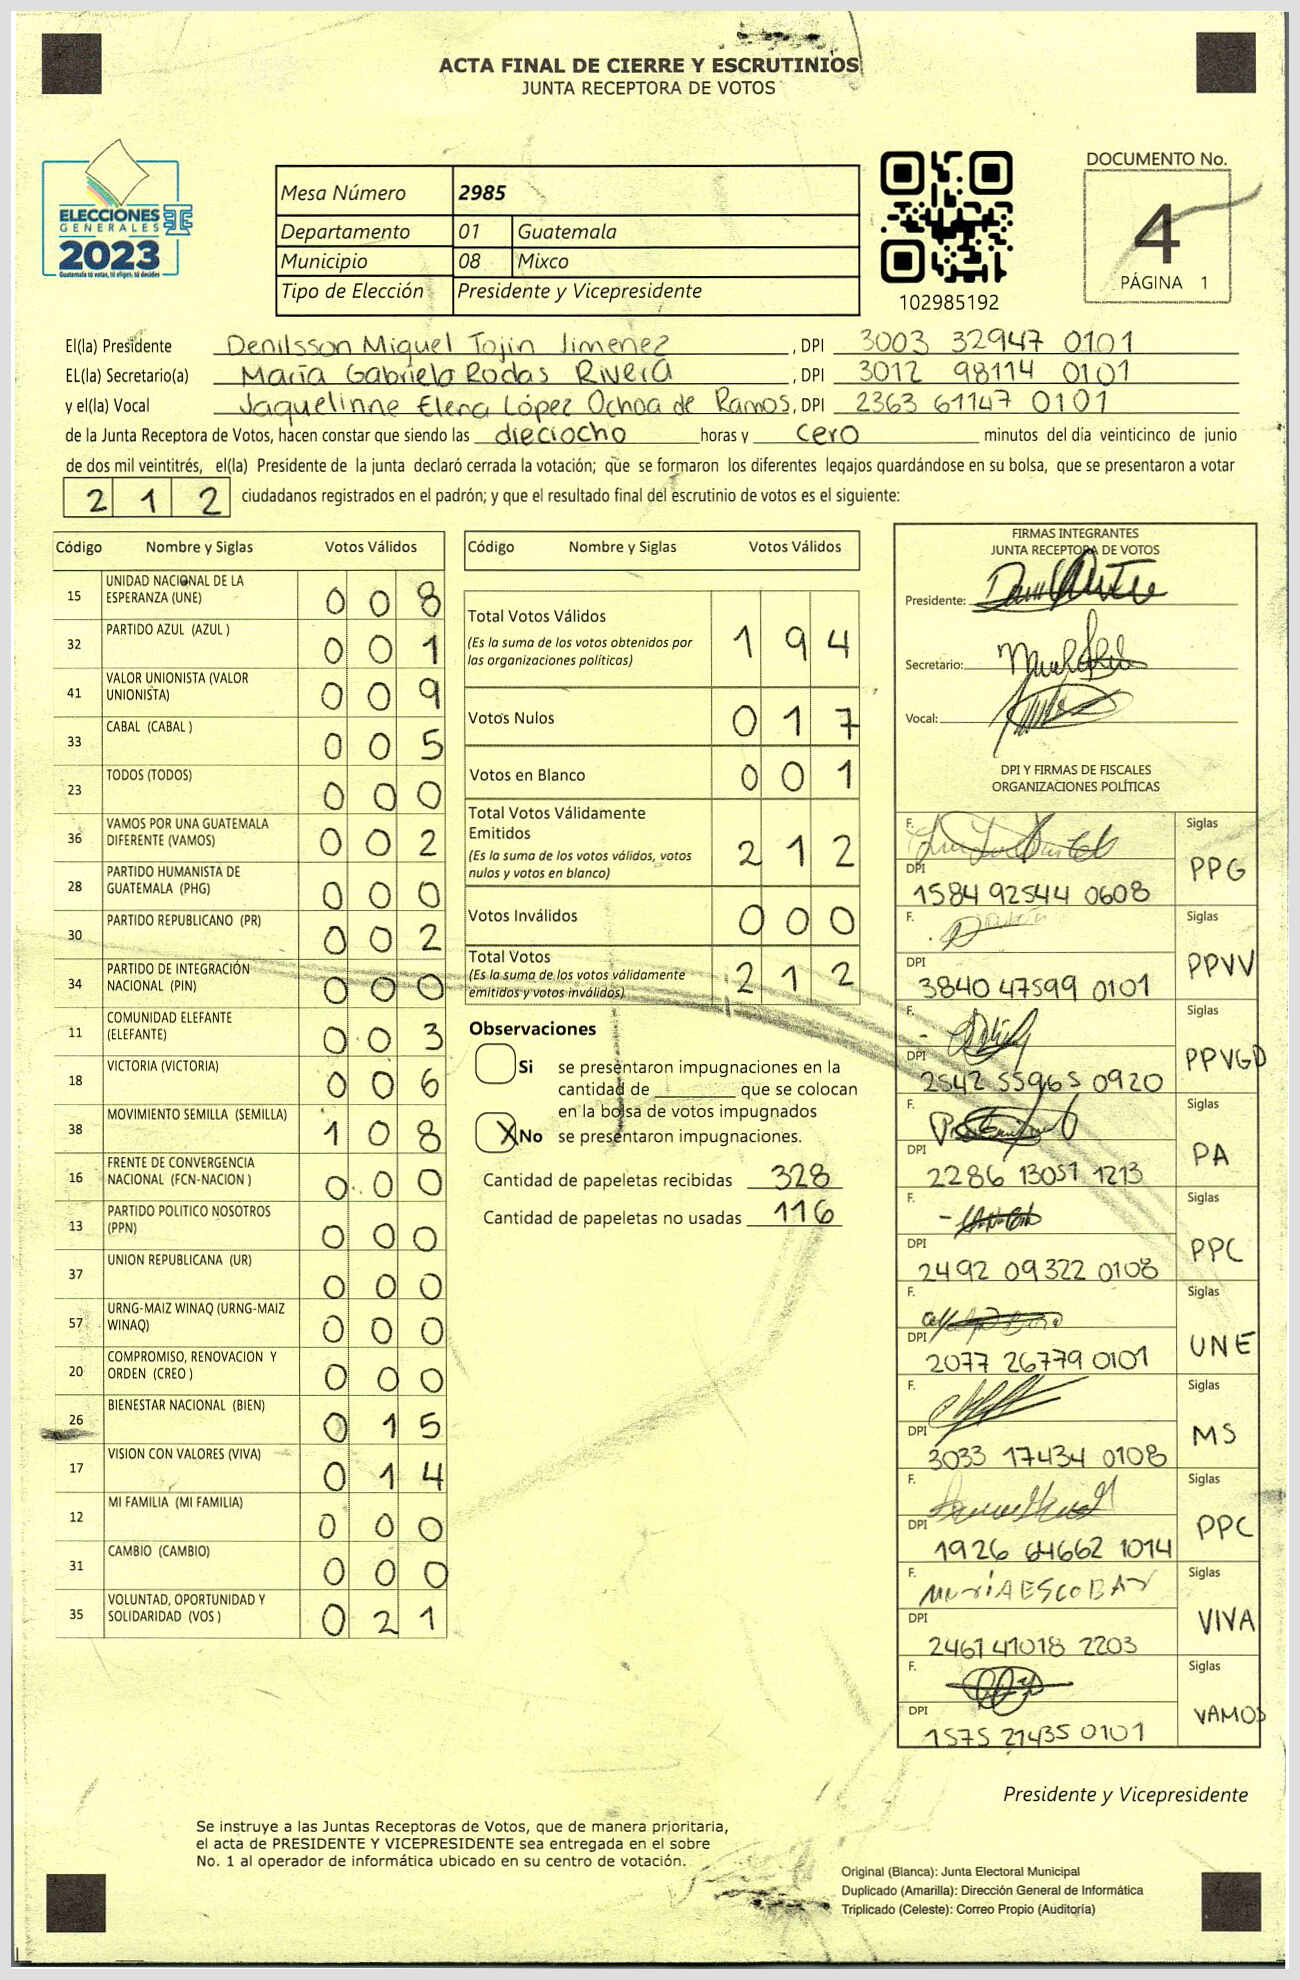 ACTA FINAL DE CIERRE Y ESCRUTINIOS
JUNTA RECEPTORA DE VOTOS
ELECCIONES
GENERALES
2023
Guatemala tú votas, tú eliges, tú decides
Mesa Número 2985
Departamento 01 Guatemala
Municipio 08 Mixco
Tipo de Elección Presidente y Vicepresidente
102985192
DOCUMENTO No.
4
PÁGINA 1
El(la) Presidente Denilsson Miguel Tojin Jimenez, DPI 3003 32947 0101
EL(la) Secretario(a) María Gabriela Rodas Rivera, DPI 3012 98114 0101
y el(la) Vocal Jaquelinne Elena López Ochoa de Ramos, DPI 2363 61147 0101
de la Junta Receptora de Votos, hacen constar que siendo las dieciocho horas y cero minutos del día veinticinco de junio
de dos mil veintitrés, el(la) Presidente de la junta declaró cerrada la votación; que se formaron los diferentes legajos quardándose en su bolsa, que se presentaron a votar
212 ciudadanos registrados en el padrón; y que el resultado final del escrutinio de votos es el siguiente:
Código Nombre y Siglas Votos Válidos
15 UNIDAD NACIONAL DE LA ESPERANZA (UNE) 008
32 PARTIDO AZUL (AZUL ) 001
41 VALOR UNIONISTA (VALOR UNIONISTA) 009
33 CABAL (CABAL ) 005
23 TODOS (TODOS) 000
36 VAMOS POR UNA GUATEMALA DIFERENTE (VAMOS) 002
28 PARTIDO HUMANISTA DE GUATEMALA (PHG) 000
30 PARTIDO REPUBLICANO (PR) 002
34 PARTIDO DE INTEGRACIÓN NACIONAL (PIN) 000
11 COMUNIDAD ELEFANTE (ELEFANTE) 003
18 VICTORIA (VICTORIA) 006
38 MOVIMIENTO SEMILLA (SEMILLA) 108
16 FRENTE DE CONVERGENCIA NACIONAL (FCN-NACION ) 000
13 PARTIDO POLITICO NOSOTROS (PPN) 000
37 UNION REPUBLICANA (UR) 000
57 URNG-MAIZ WINAQ (URNG-MAIZ WINAQ) 000
20 COMPROMISO, RENOVACION Y ORDEN (CREO ) 000
26 BIENESTAR NACIONAL (BIEN) 015
17 VISION CON VALORES (VIVA) 014
12 MI FAMILIA (MI FAMILIA) 000
31 CAMBIO (CAMBIO) 000
35 VOLUNTAD, OPORTUNIDAD Y SOLIDARIDAD (VOS ) 021
Código Nombre y Siglas Votos Válidos
Total Votos Válidos 194
(Es la suma de los votos obtenidos por
las organizaciones políticas)
Votos Nulos 017
Votos en Blanco 001
Total Votos Válidamente
Emitidos 212
(Es la suma de los votos válidos, votos
nulos y votos en blanco)
Votos Inválidos 000
Total Votos 212
(Es la suma de los votos válidamente
emitidos y votos inválidos)
Observaciones
Si se presentaron impugnaciones en la
cantidad de ________ que se colocan
en la bolsa de votos impugnados
X No se presentaron impugnaciones.
Cantidad de papeletas recibidas 328
Cantidad de papeletas no usadas 116
FIRMAS INTEGRANTES
JUNTA RECEPTORA DE VOTOS
Presidente:
Secretario:
Vocal:
DPI Y FIRMAS DE FISCALES
ORGANIZACIONES POLÍTICAS
F. Siglas
DPI 1584 92544 0608 PPG
F. Siglas
DPI 3840 47599 0101 PPVV
F. Siglas
DPI 2542 55965 0920 PPVGD
F. Siglas
DPI 2286 13051 1213 PA
F. Siglas
DPI 2492 09322 0108 PPC
F. Siglas
DPI 2077 26779 0101 UNE
F. Siglas
DPI 3033 17434 0108 MS
F. Siglas
DPI 1926 64662 1014 PPC
F. MaríaESCOBAR Siglas
DPI 2461 41018 2203 VIVA
F. Siglas
DPI 1575 21435 0101 VAMOS
Presidente y Vicepresidente
Se instruye a las Juntas Receptoras de Votos, que de manera prioritaria,
el acta de PRESIDENTE Y VICEPRESIDENTE sea entregada en el sobre
No. 1 al operador de informática ubicado en su centro de votación.
Original (Blanca): Junta Electoral Municipal
Duplicado (Amarilla): Dirección General de Informática
Triplicado (Celeste): Correo Propio (Auditoría)